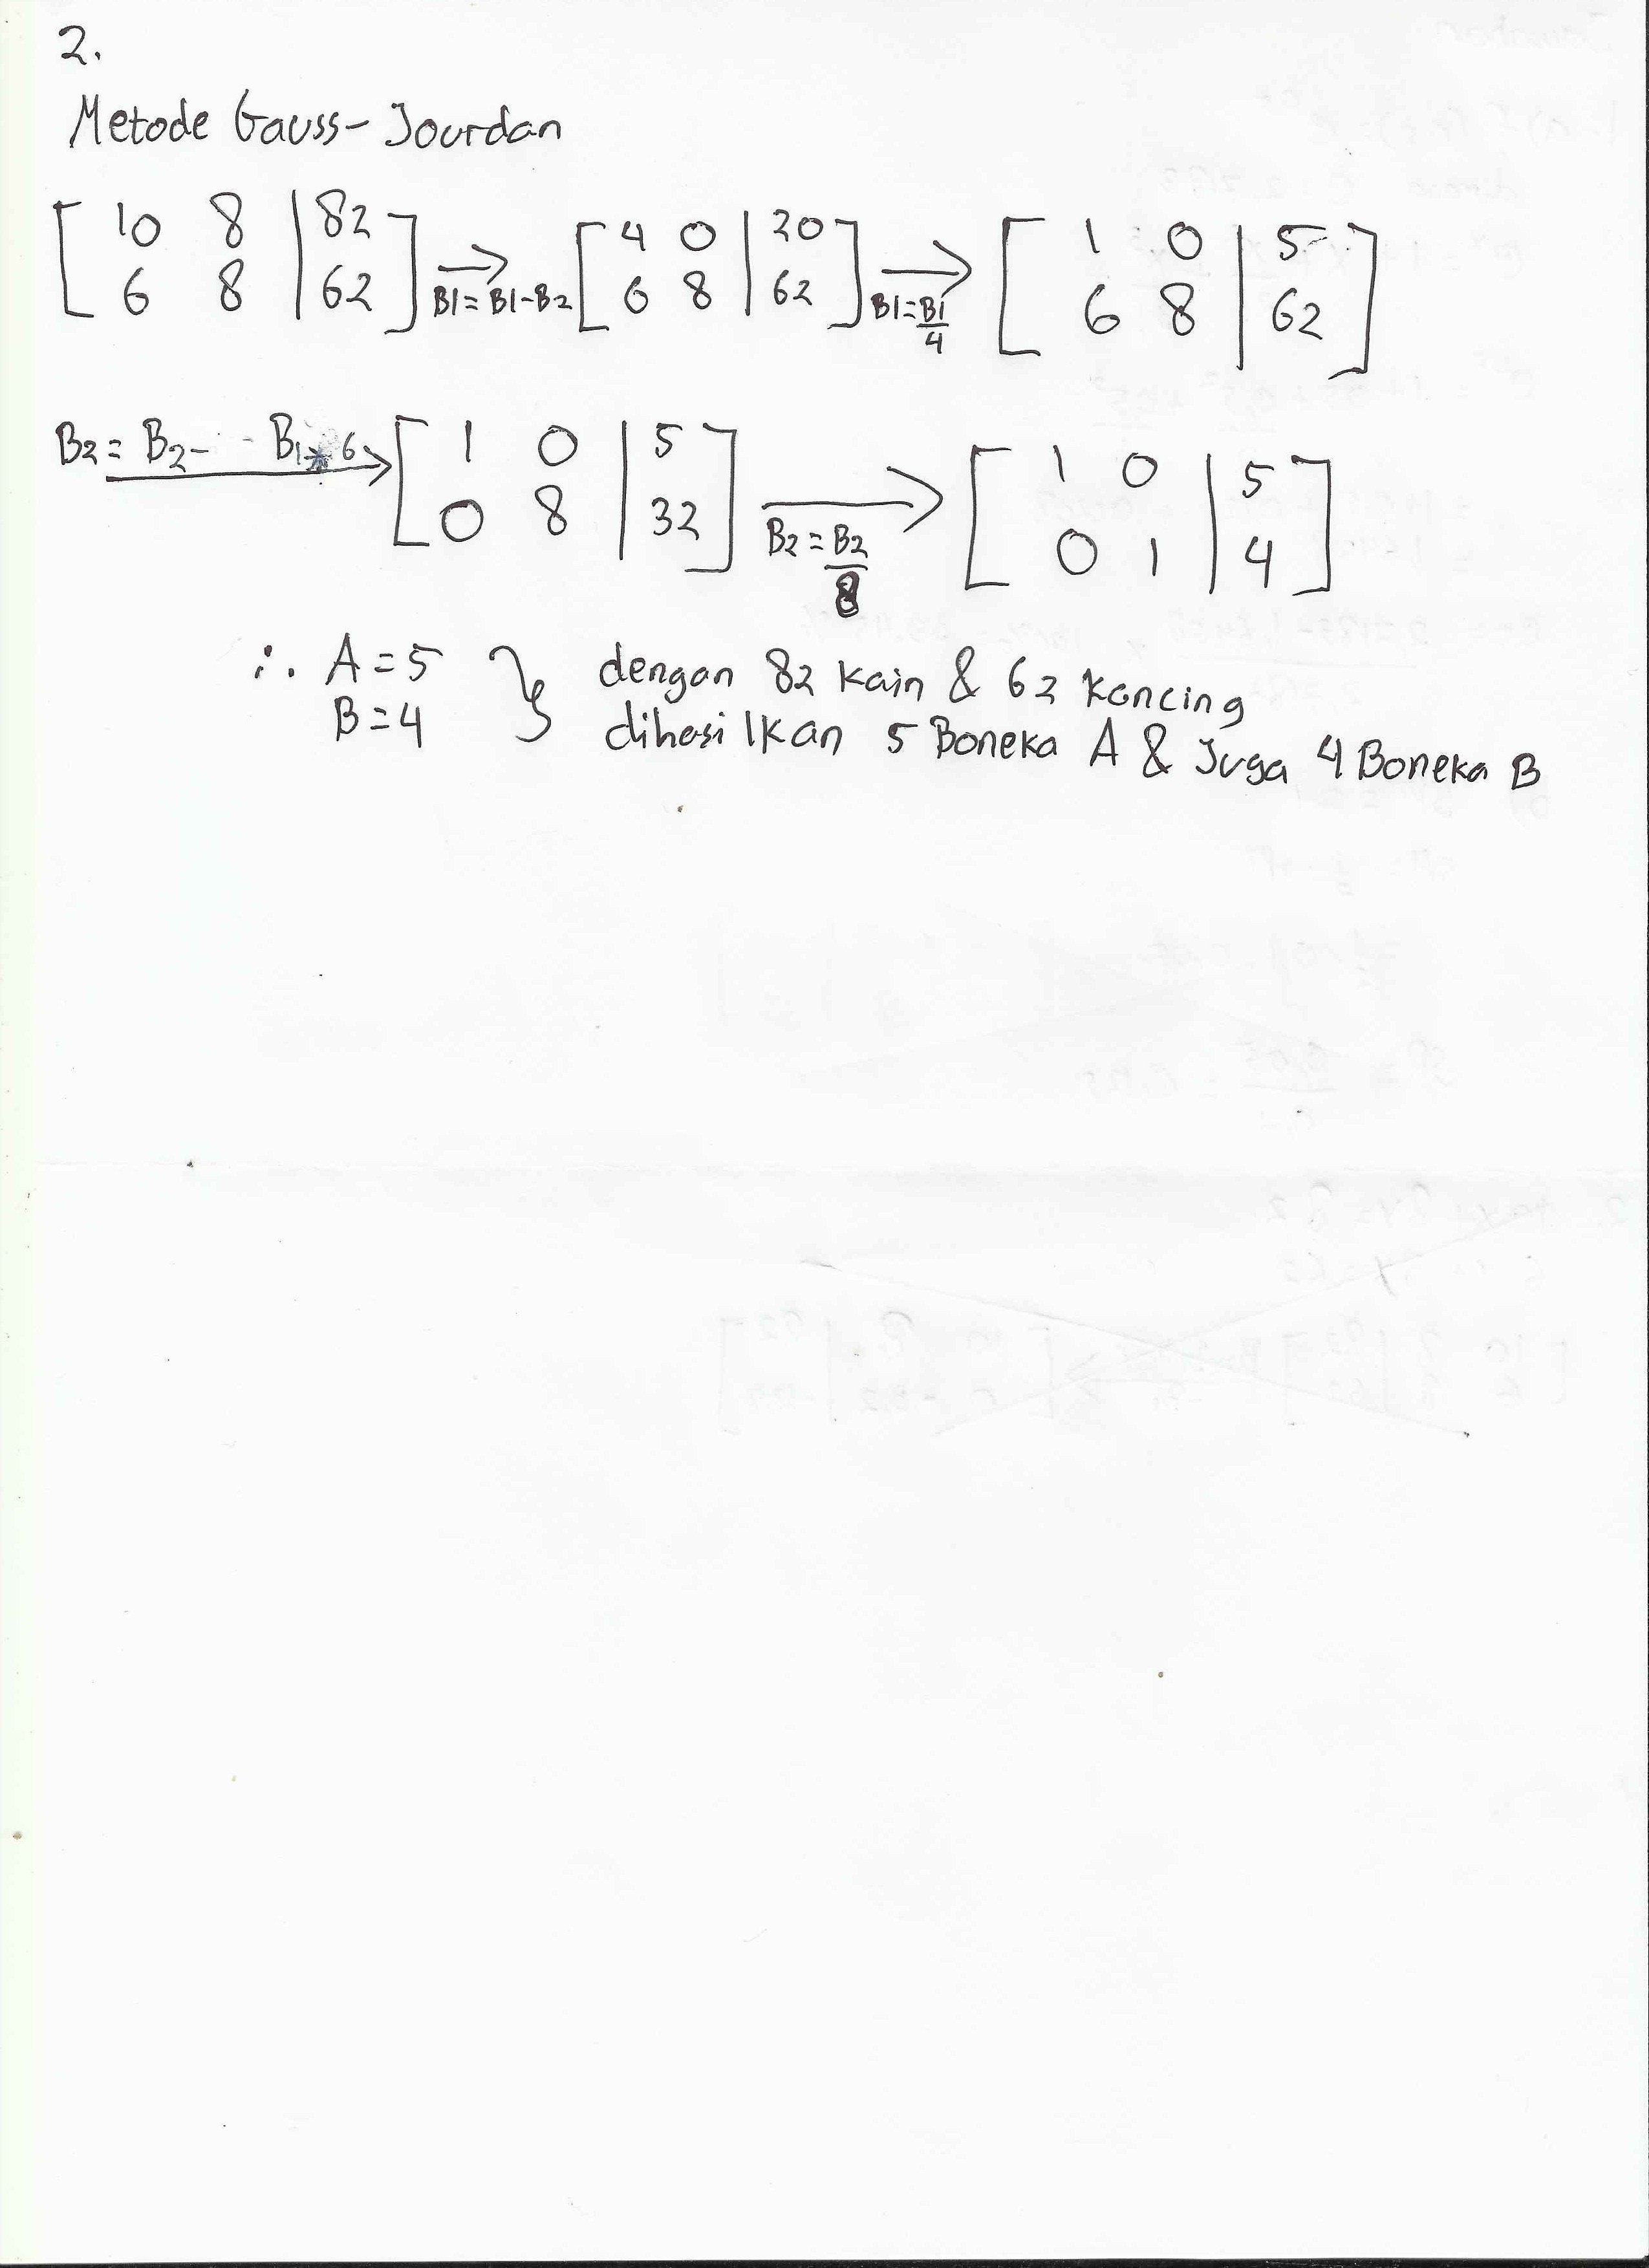 2.
Metode Gauss-Jourdan
[ 10 8 | 82 ] → [ 4 0 | 20 ] → [ 1 0 | 5 ]
[ 6 8 | 62 ] B1=B1-B2 [ 6 8 | 62 ] B1=B1/4 [ 6 8 | 62 ]
B2=B2- B1*6 → [ 1 0 | 5 ] → [ 1 0 | 5 ]
[ 0 8 | 32 ] B2=B2/8 [ 0 1 | 4 ]
∴ A=5 } dengan 82 kain & 62 kancing
B=4 dihasilkan 5 Boneka A & Juga 4 Boneka B